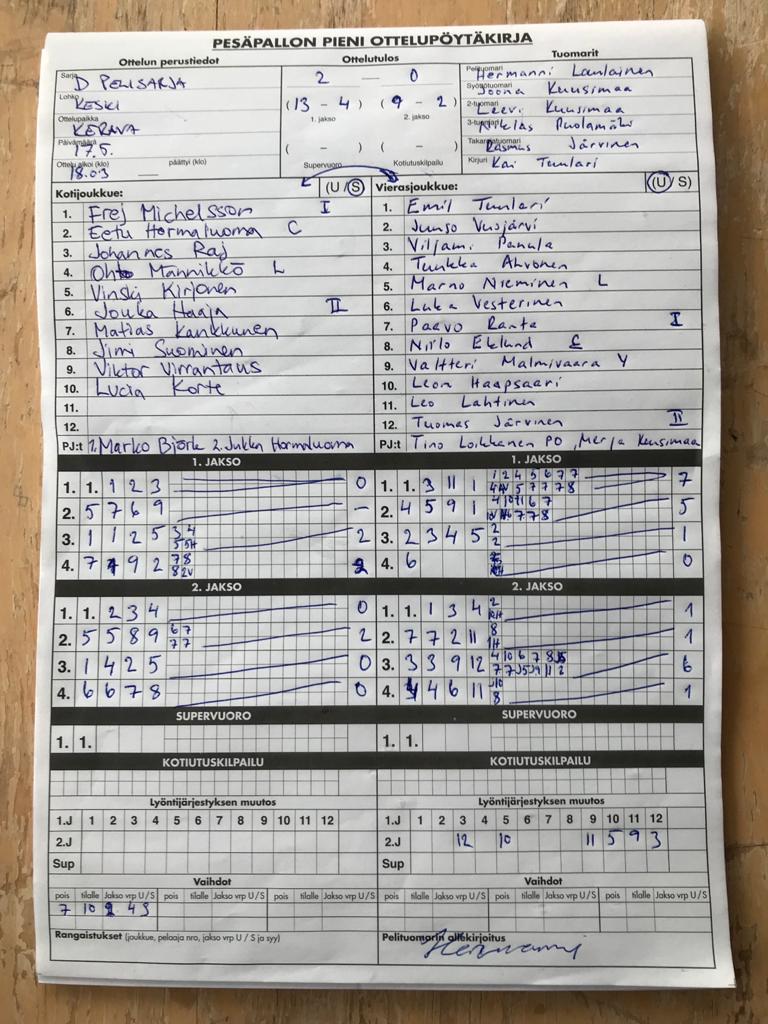 PESÄPALLON PIENI OTTELUPÖYTÄKIRJA
Ottelun perustiedot
Sarja D PELISARJA
Lohko KESKI
Ottelupaikka KERAVA
Päivämäärä 17.5.
Ottelu alkoi (klo) 18.03 päättyi (klo)
Ottelutulos
2 — 0
(13 - 4) (9 - 2)
1. jakso 2. jakso
( - ) ( - )
Supervuoro Kotiutuskilpailu
Tuomarit
Pelituomari Hermanni Laulainen
Syöttötuomari Joona Kuusimaa
2-tuomari Leevi Kuusimaa
3-tuomari Niklas Puolamäki
Takarajatuomari Rasmus Järvinen
Kirjuri Kai Tuulari
Kotijoukkue: (U/S)
1. Frej Michelsson I
2. Eetu Hormaluoma C
3. Johannes Raj
4. Ohto Männikkö L
5. Vinski Kirjonen
6. Jouka Haaja II
7. Matias Kankkunen
8. Jimi Suominen
9. Viktor Virrantaus
10. Lucia Korte
11.
12.
PJ:t 1. Marko Björk 2. Jukka Hormaluoma
Vierasjoukkue: (U/S)
1. Emil Tuulari
2. Juuso Vuojärvi
3. Viljami Panula
4. Tuukka Ahvonen
5. Marno Nieminen L
6. Luka Vesterinen
7. Paavo Ranta I
8. Niilo Eklund C
9. Valtteri Malmivaara Y
10. Leon Haapsaari
11. Leo Lahtinen
12. Tuomas Järvinen II
PJ:t Tino Loikkanen PO, Merja Kuusimaa
1. JAKSO
1. 1. 1 2 3 0
2. 5 7 6 9 –
3. 1 1 2 5 3 4 2
5 5H
4. 7 9 2 7 8 2
8 2V
2. JAKSO
1. 1. 2 3 4 0
2. 5 5 8 9 6 7 2
7 7
3. 1 4 2 5 0
4. 6 6 7 8 0
SUPERVUORO
1. 1.
KOTIUTUSKILPAILU
Lyöntijärjestyksen muutos
1.J 1 2 3 4 5 6 7 8 9 10 11 12
2.J
Sup
Vaihdot
pois tilalle Jakso vrp U/S pois tilalle Jakso vrp U/S pois tilalle Jakso vrp U/S
7 10 2 4 S
Rangaistukset (joukkue, pelaaja nro, jakso vrp U / S ja syy)
1. JAKSO
1. 1. 3 11 1 1 2 4 5 6 7 7 7
2. 4 5 9 1 5
3. 2 3 4 5 2 1
2
4. 6 0
2. JAKSO
1. 1. 1 3 4 2 1
2. 7 7 2 11 8 1
1H
3. 3 3 9 12 4 10 6 7 8 6
4. 4 6 11 1
8
SUPERVUORO
1. 1.
KOTIUTUSKILPAILU
Lyöntijärjestyksen muutos
1.J 1 2 3 4 5 6 7 8 9 10 11 12
2.J 12 10 11 5 9 3
Sup
Vaihdot
pois tilalle Jakso vrp U/S pois tilalle Jakso vrp U/S pois tilalle Jakso vrp U/S
Pelituomarin allekirjoitus